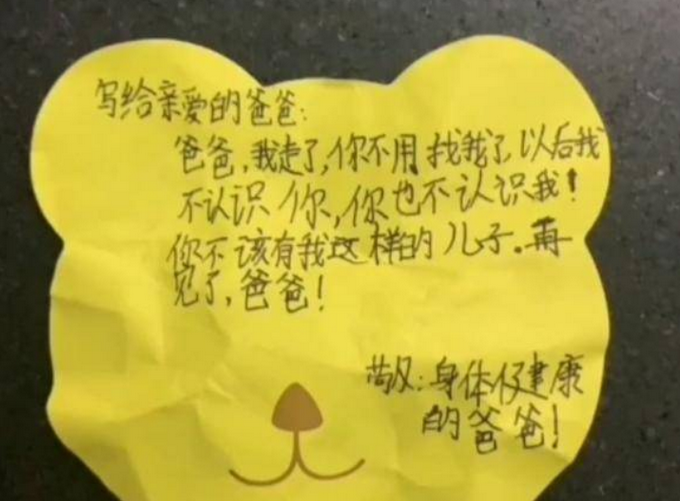 写给亲爱的爸爸:
爸爸,我走了,你不用找我了,以后我
不认识你,你也不认识我!
你不该有我这样的儿子。再
见了,爸爸!
敬:身体健康
的爸爸!